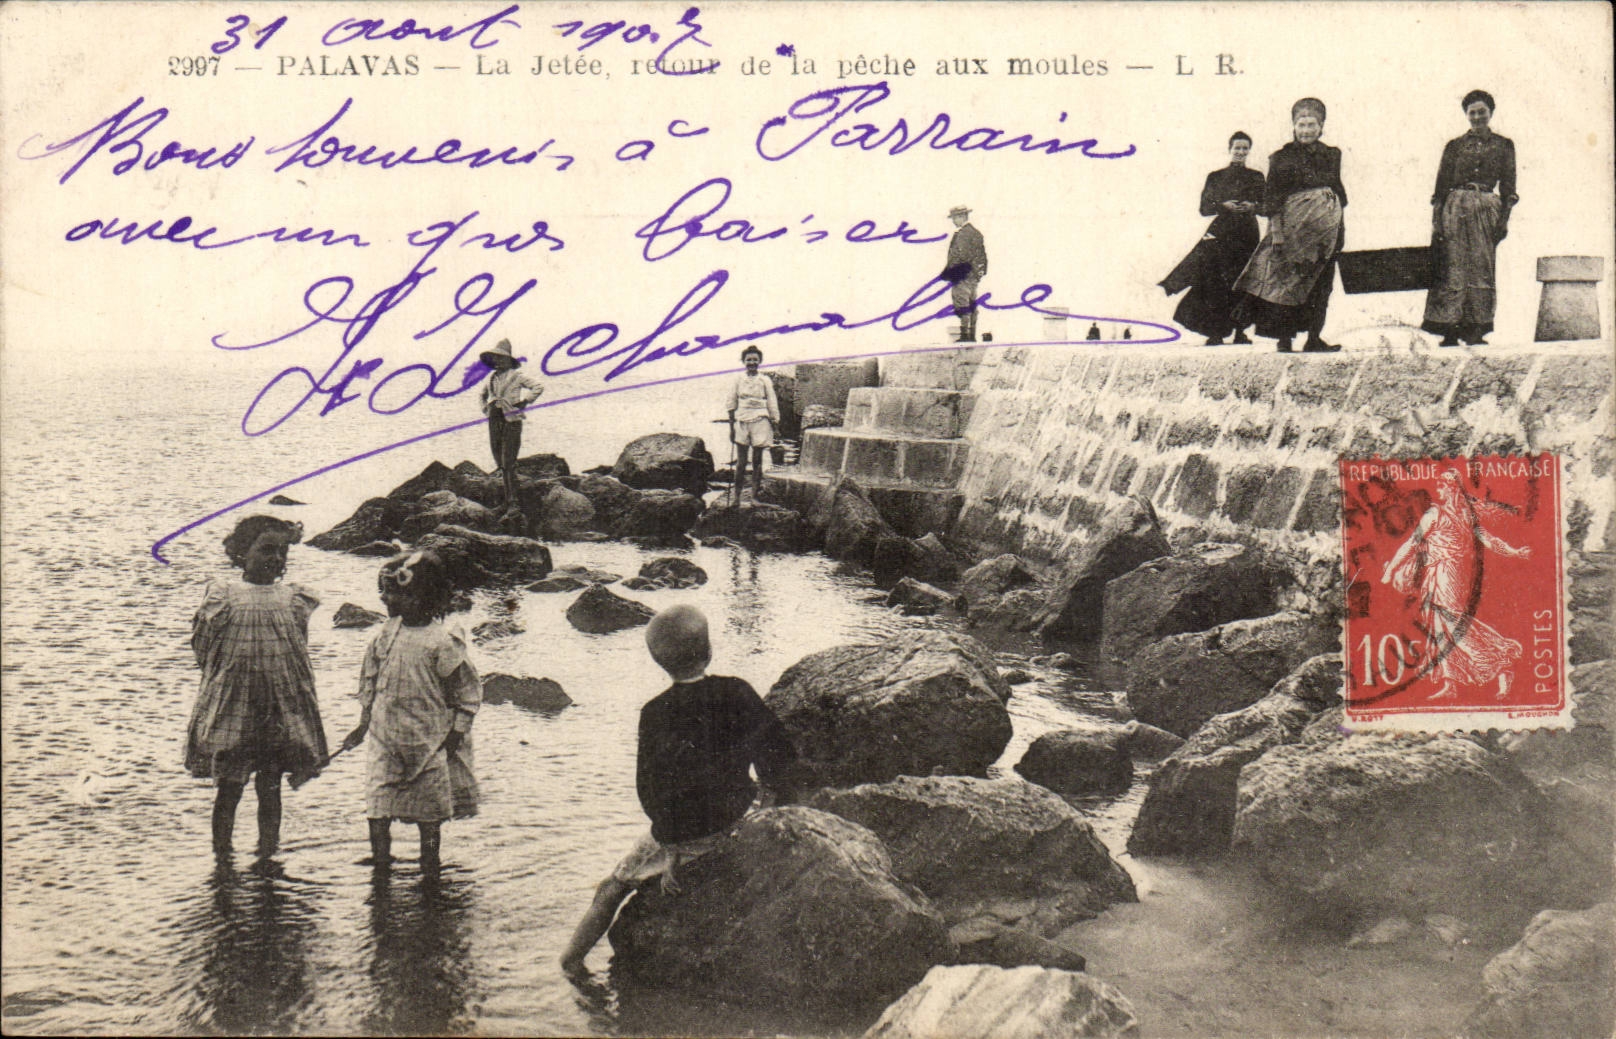 31 août 1907
2997 — PALAVAS — La Jetée, retour de la pêche aux moules — L R.
Bons souvenirs à Parrain
avec un gros baiser
REPUBLIQUE FRANÇAISE
10c
POSTES
O.ROTY
E.MOUCHON